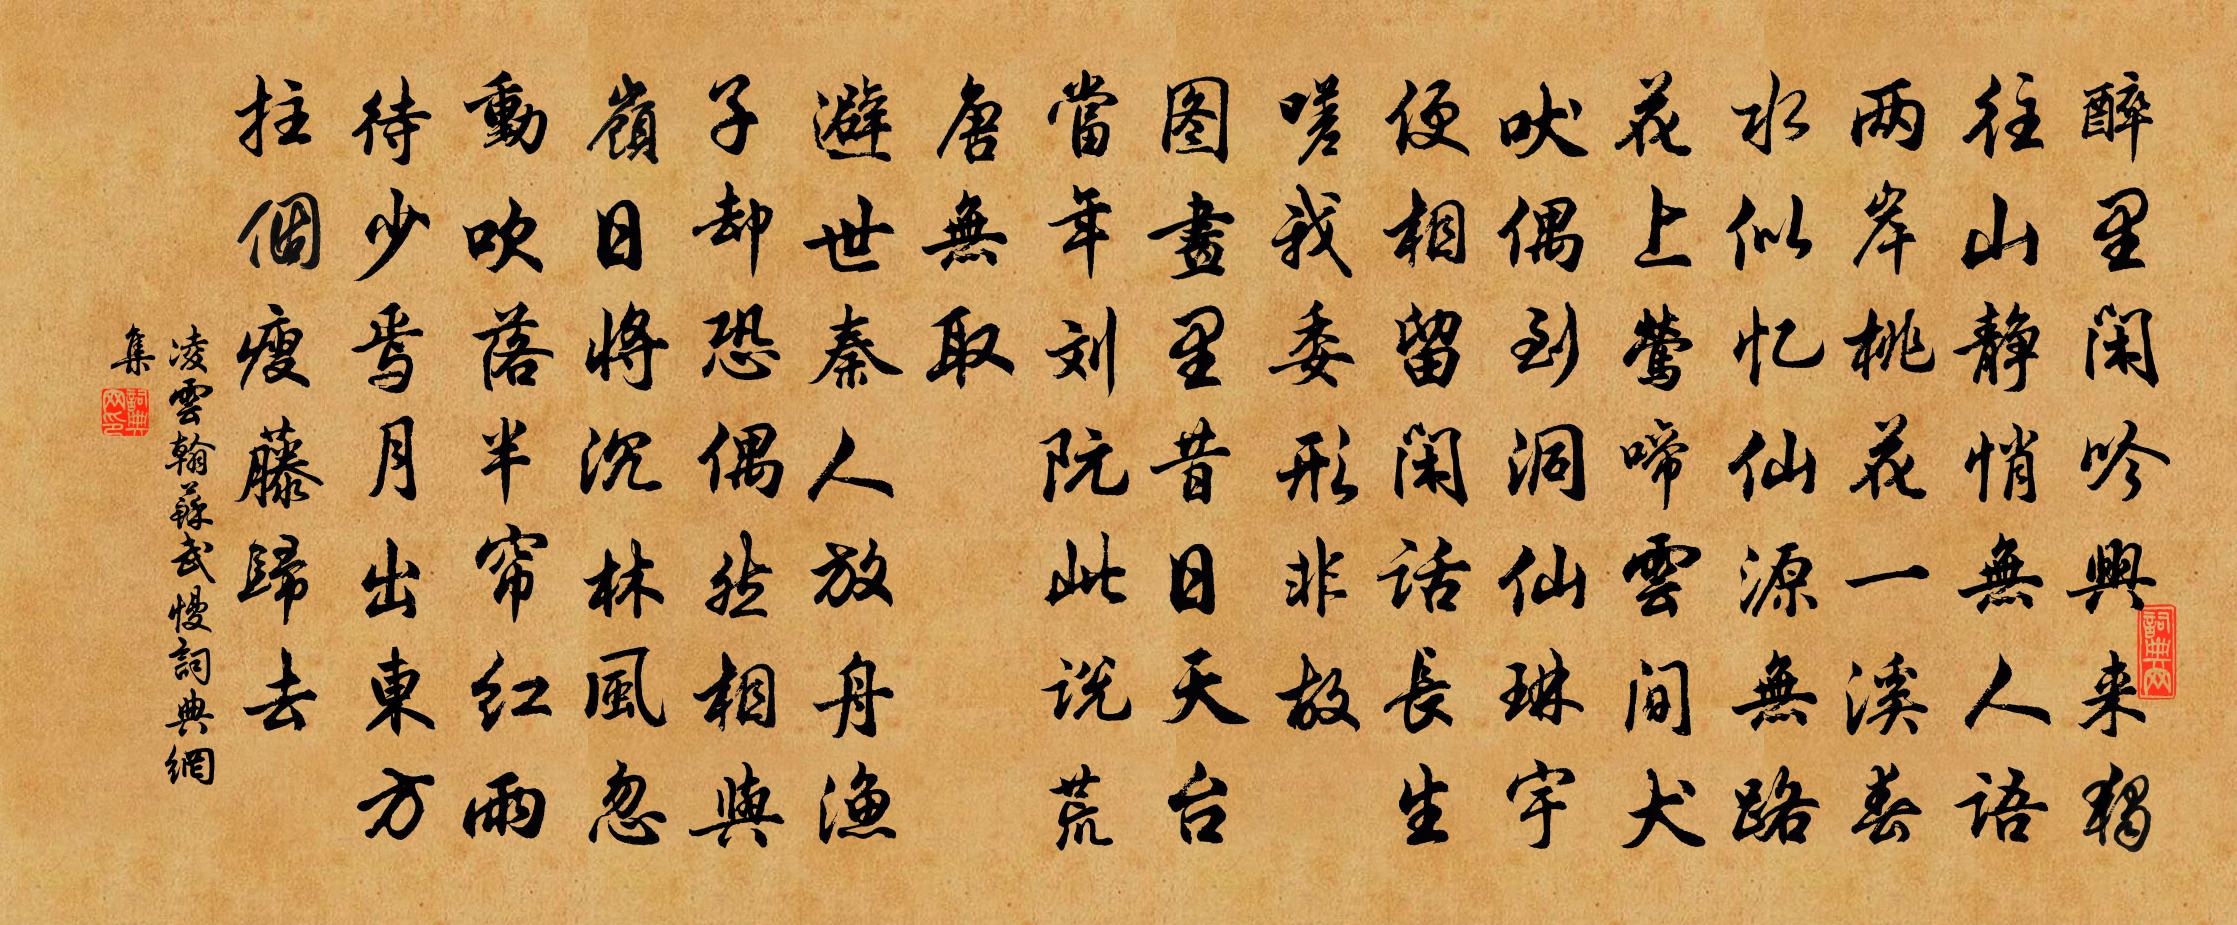 醉里闲吟興来獨
往山静悄無人語
两岸桃花一溪春
水似忆仙源無路
花上鶯啼雲间犬
吠偶到洞仙琳宇
便相留闲話長生
嗟我委形非故
图畫里昔日天台
當年刘阮此说荒
唐無取
避世秦人放舟漁
子却恐偶然相與
嶺日將沉林風忽
動吹落半帘红雨
待少焉月出東方
拄個瘦藤歸去
凌雲翰蘇武慢詞典網
集
詞典网
詞典网印